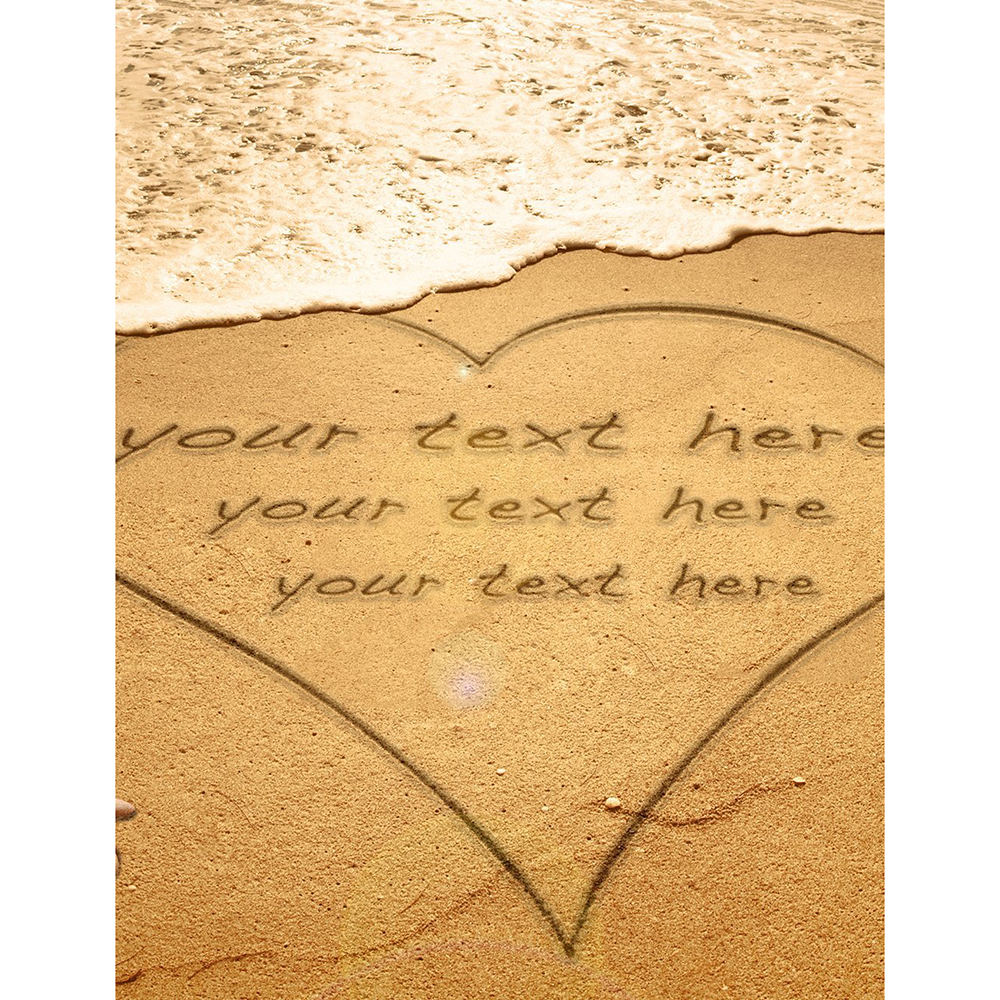 your text here
your text here
your text here